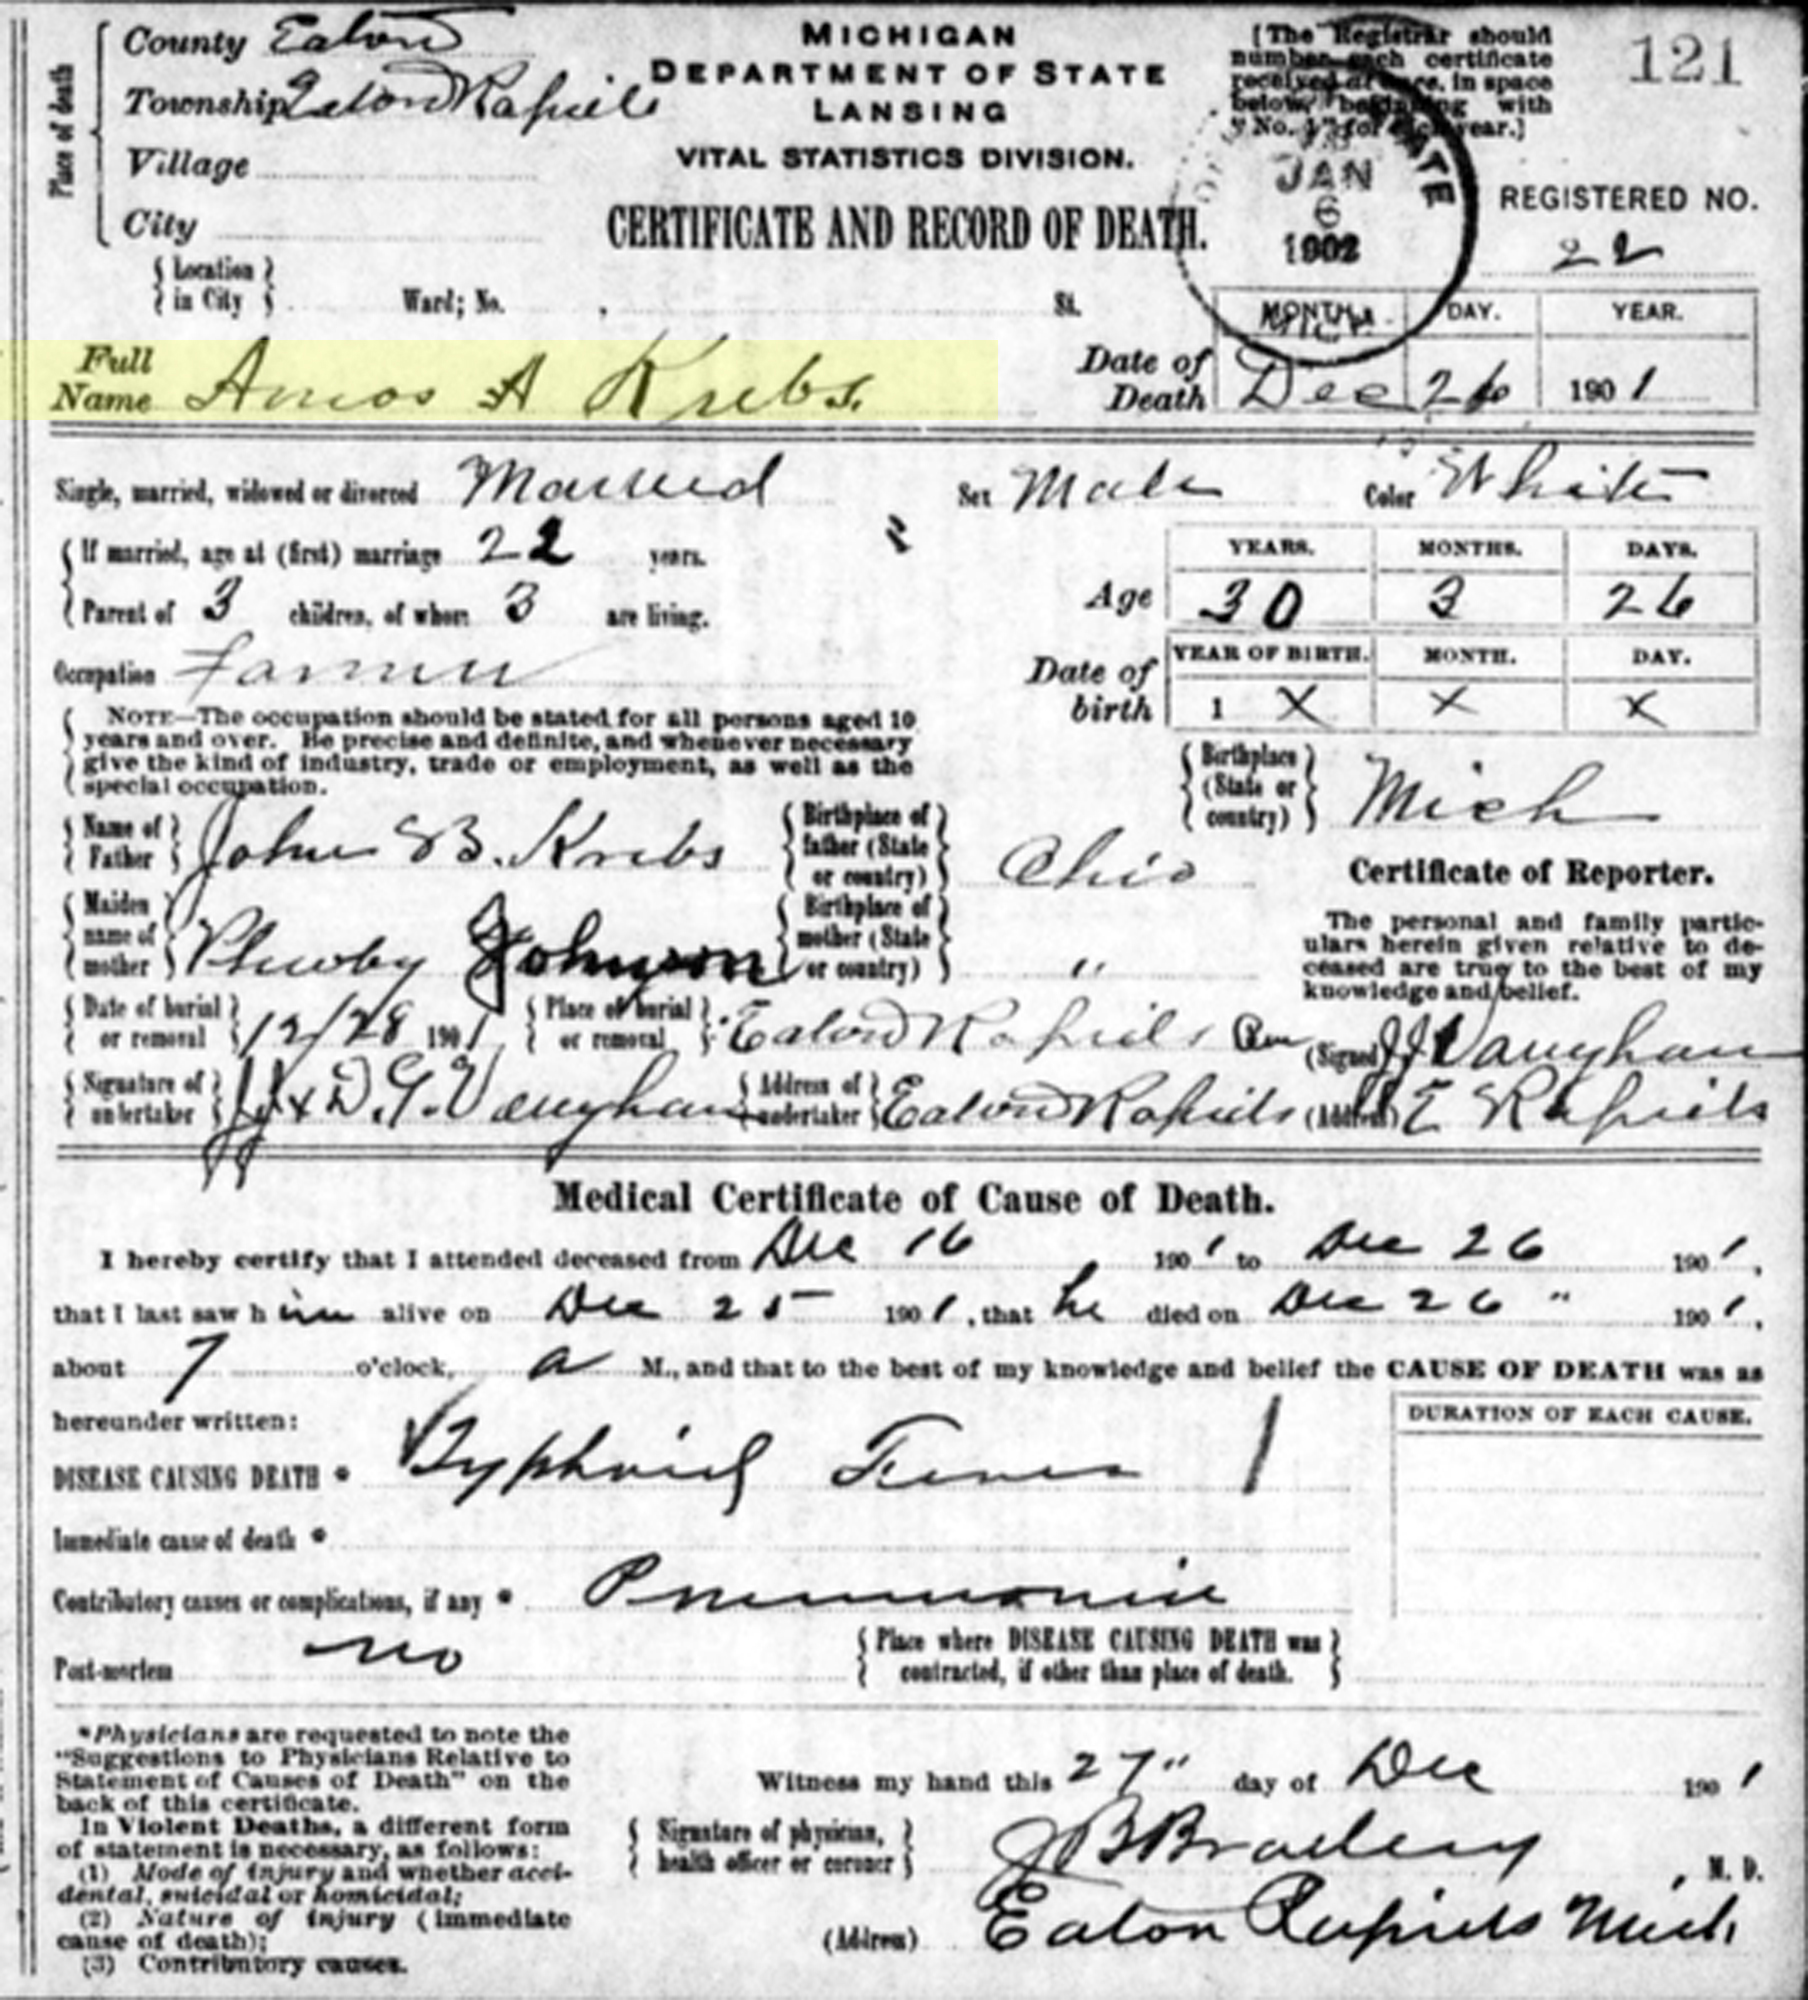 Place of death
County Eaton
Township Eaton Rapids
Village
City
MICHIGAN
DEPARTMENT OF STATE
LANSING
VITAL STATISTICS DIVISION.
CERTIFICATE AND RECORD OF DEATH.
[The Registrar should
number each certificate
received at once, in space
below, beginning with
"No. 1" for each year.]
121
STATE
JAN
6
1902
MICH.
REGISTERED NO.
22
Location in City Ward; No. , St.
Full Name Amos A Krebs.
Date of Death
MONTH. DAY. YEAR.
Dec 26 1901
Single, married, widowed or divorced Married Sex Male Color White
If married, age at (first) marriage 22 years.
Parent of 3 children, of whom 3 are living.
Age
YEARS. MONTHS. DAYS.
30 3 26
Occupation Farmer
Date of birth
YEAR OF BIRTH. MONTH. DAY.
1 X X X
NOTE—The occupation should be stated for all persons aged 10
years and over. Be precise and definite, and whenever necessary
give the kind of industry, trade or employment, as well as the
special occupation.
Birthplace (State or country) Mich
Name of Father John B. Krebs
Birthplace of father (State or country) Ohio
Maiden name of mother Phewby Johnson
Birthplace of mother (State or country) "
Certificate of Reporter.
The personal and family partic-
ulars herein given relative to de-
ceased are true to the best of my
knowledge and belief.
Date of burial or removal 12/28 1901 Place of burial or removal Eaton Rapids
(Signed) JJ Vaughan
Signature of undertaker JJ & D. G. Vaughan Address of undertaker Eaton Rapids
(Address) E Rapids
Medical Certificate of Cause of Death.
I hereby certify that I attended deceased from Dec 16 1901 to Dec 26 1901,
that I last saw him alive on Dec 25 1901, that he died on Dec 26 " 1901,
about 7 o'clock, a M., and that to the best of my knowledge and belief the CAUSE OF DEATH was as
hereunder written:
DURATION OF EACH CAUSE.
DISEASE CAUSING DEATH * Typhoid Fever
Immediate cause of death *
Contributory causes or complications, if any * Pneumonia
Post-mortem no
Place where DISEASE CAUSING DEATH was
contracted, if other than place of death.
*Physicians are requested to note the
"Suggestions to Physicians Relative to
Statement of Causes of Death" on the
back of this certificate.
In Violent Deaths, a different form
of statement is necessary, as follows:
(1) Mode of injury and whether acci-
dental, suicidal or homicidal;
(2) Nature of injury (immediate
cause of death);
(3) Contributory causes.
Witness my hand this 27" day of Dec 1901
Signature of physician, health officer or coroner J B Bradley, M. D.
(Address) Eaton Rapids Mich